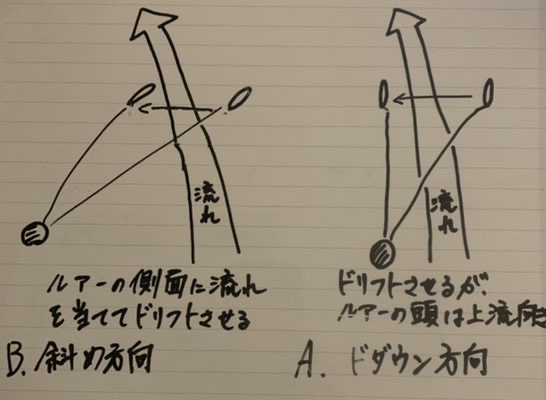 流れ
ルアーの側面に流れ
を当ててドリフトさせる
B. 斜め方向
流れ
ドリフトさせるが、
ルアーの頭は上流向き
A. ドダウン方向